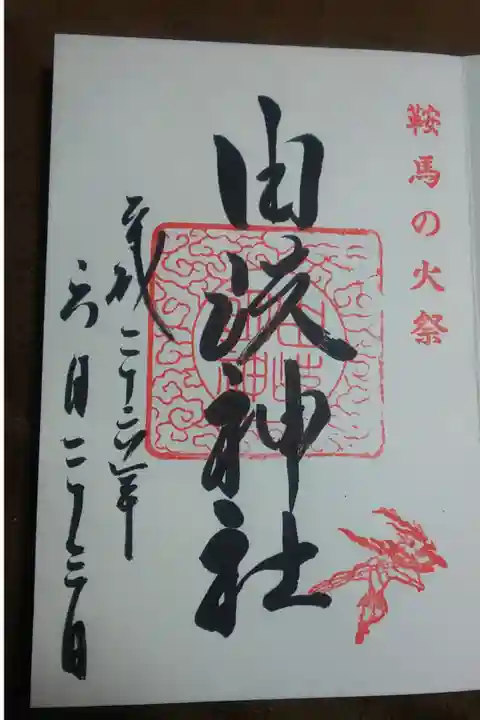 鞍馬の火祭
由岐神社
平成二十六年
六月二十二日